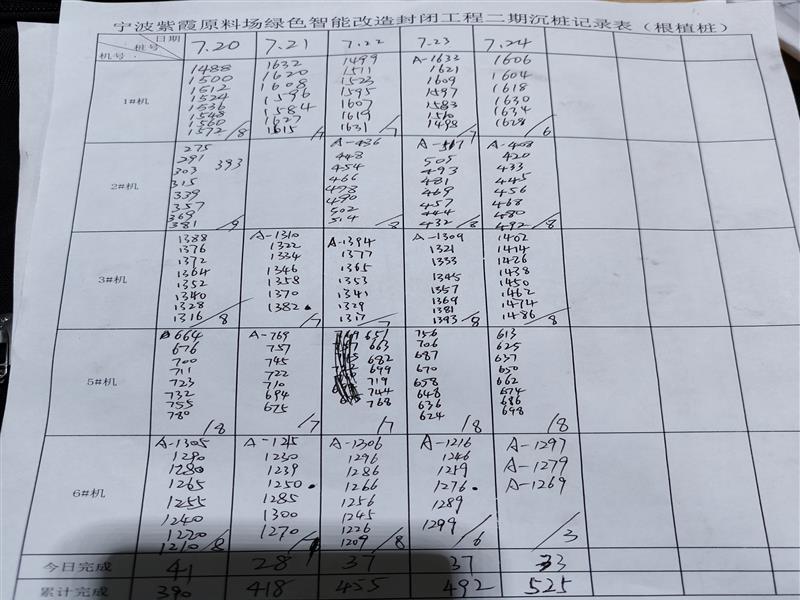 宁波紫霞原料场绿色智能改造封闭工程二期沉桩记录表（根植桩）
日期 桩号 机号 7.20 7.21 7.22 7.23 7.24
1#机
1488 1632 1499 A-1633 1606
1500 1620 1511 1621 1604
1512 1608 1523 1609 1618
1524 1596 1595 1597 1630
1536 1584 1607 1583 1634
1548 1627 1619 1510 1628
1560 1615 1631 1498 /6
1572 /8 /7 /7 /7
2#机
275 A-436 A-517 A-408
291 393 448 505 420
303 454 493 433
315 466 481 445
339 478 469 456
357 490 457 468
369 502 444 480
381 /9 514 /8 432 /8 492 /8
3#机
1388 A-1310 A-1394 A-1309 1402
1376 1322 1377 1321 1414
1372 1334 1365 1333 1426
1364 1346 1353 1345 1438
1352 1358 1341 1357 1450
1340 1370 1329 1369 1462
1328 1382 1317 1381 1474
1316 /8 /7 /7 1393 /8 1486 /8
5#机
664 A-769 651 756 613
676 757 663 706 625
700 745 682 687 637
711 722 699 670 650
723 710 719 658 662
732 694 744 648 674
755 675 768 636 686
780 624 698
/8 /7 /7 /8 /8
6#机
A-1305 A-1215 A-1306 A-1216 A-1297
1290 1230 1296 1246 A-1279
1280 1239 1286 1259 A-1269
1265 1250 1266 1276
1255 1285 1256 1289
1240 1300 1245 1299
1220 1270 1226
1210 /8 /7 1209 /8 /6 /3
今日完成 41 28 37 37 33
累计完成 390 418 455 492 525